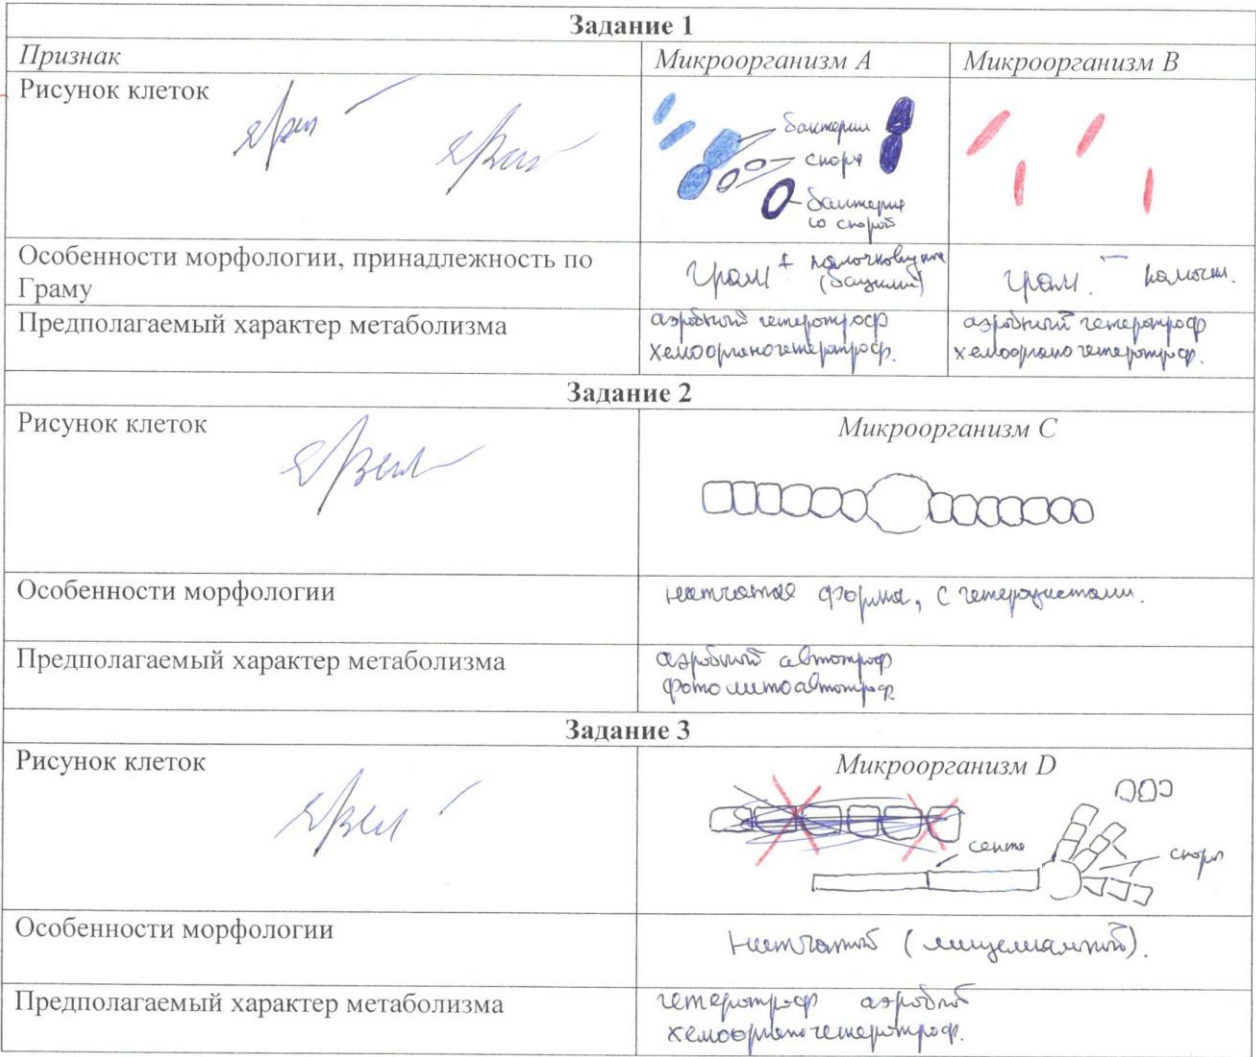 Задание 1
Признак Микроорганизм А Микроорганизм В
Рисунок клеток
бактерии
споры
бактерия
со спорой
Особенности морфологии, принадлежность по
Граму
Грам + палочковидные
(бациллы)
Грам. – палочки.
Предполагаемый характер метаболизма
аэробный гетеротроф
хемоорганогетеротроф.
аэробный гетеротроф
хемоорганогетеротроф.
Задание 2
Рисунок клеток Микроорганизм С
Особенности морфологии
нитчатая форма, с гетероцистами.
Предполагаемый характер метаболизма
аэробный автотроф
фотолитоавтотроф
Задание 3
Рисунок клеток Микроорганизм D
септа
споры
Особенности морфологии
Нитчатый (мицелиальный).
Предполагаемый характер метаболизма
гетеротроф аэробный
хемоорганогетеротроф.